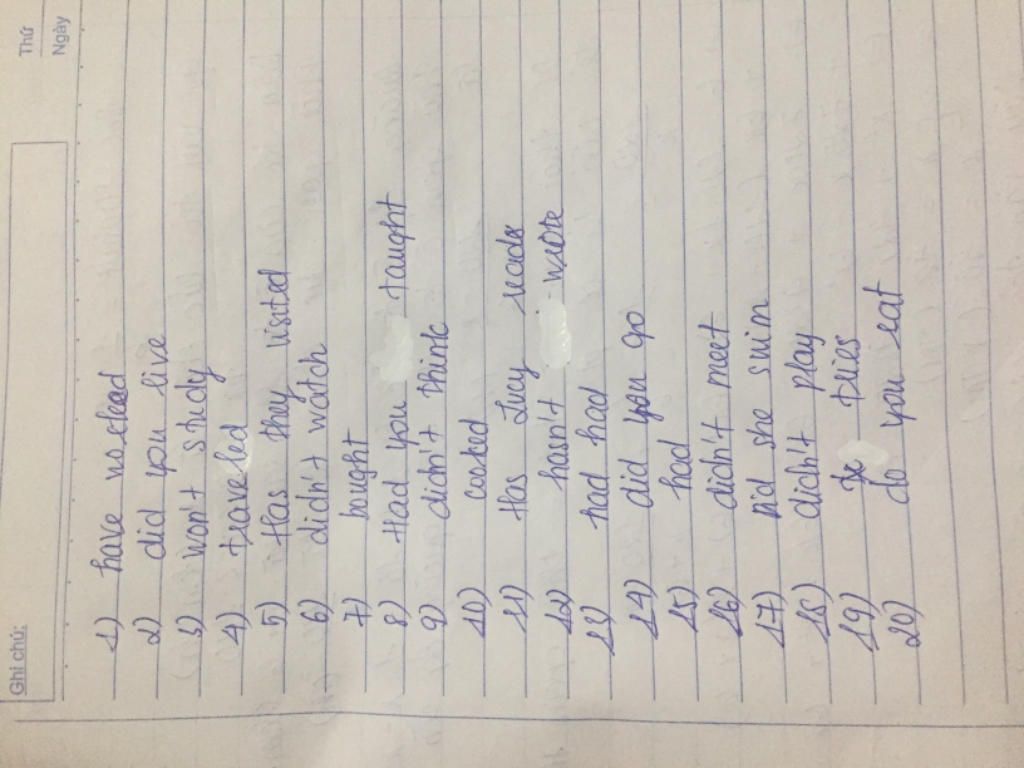 Thứ
Ngày
Ghi chú:
1) have worked
2) did you live
3) won't study
4) traveled
5) Has they visited
6) didn't watch
7) bought
8) Had you taught
9) didn't think
10) cooked
11) Has Lucy read
12) hasn't wore
13) had had
14) did you go
15) had
16) didn't meet
17) Did she swim
18) didn't play
19) tries
20) do you eat